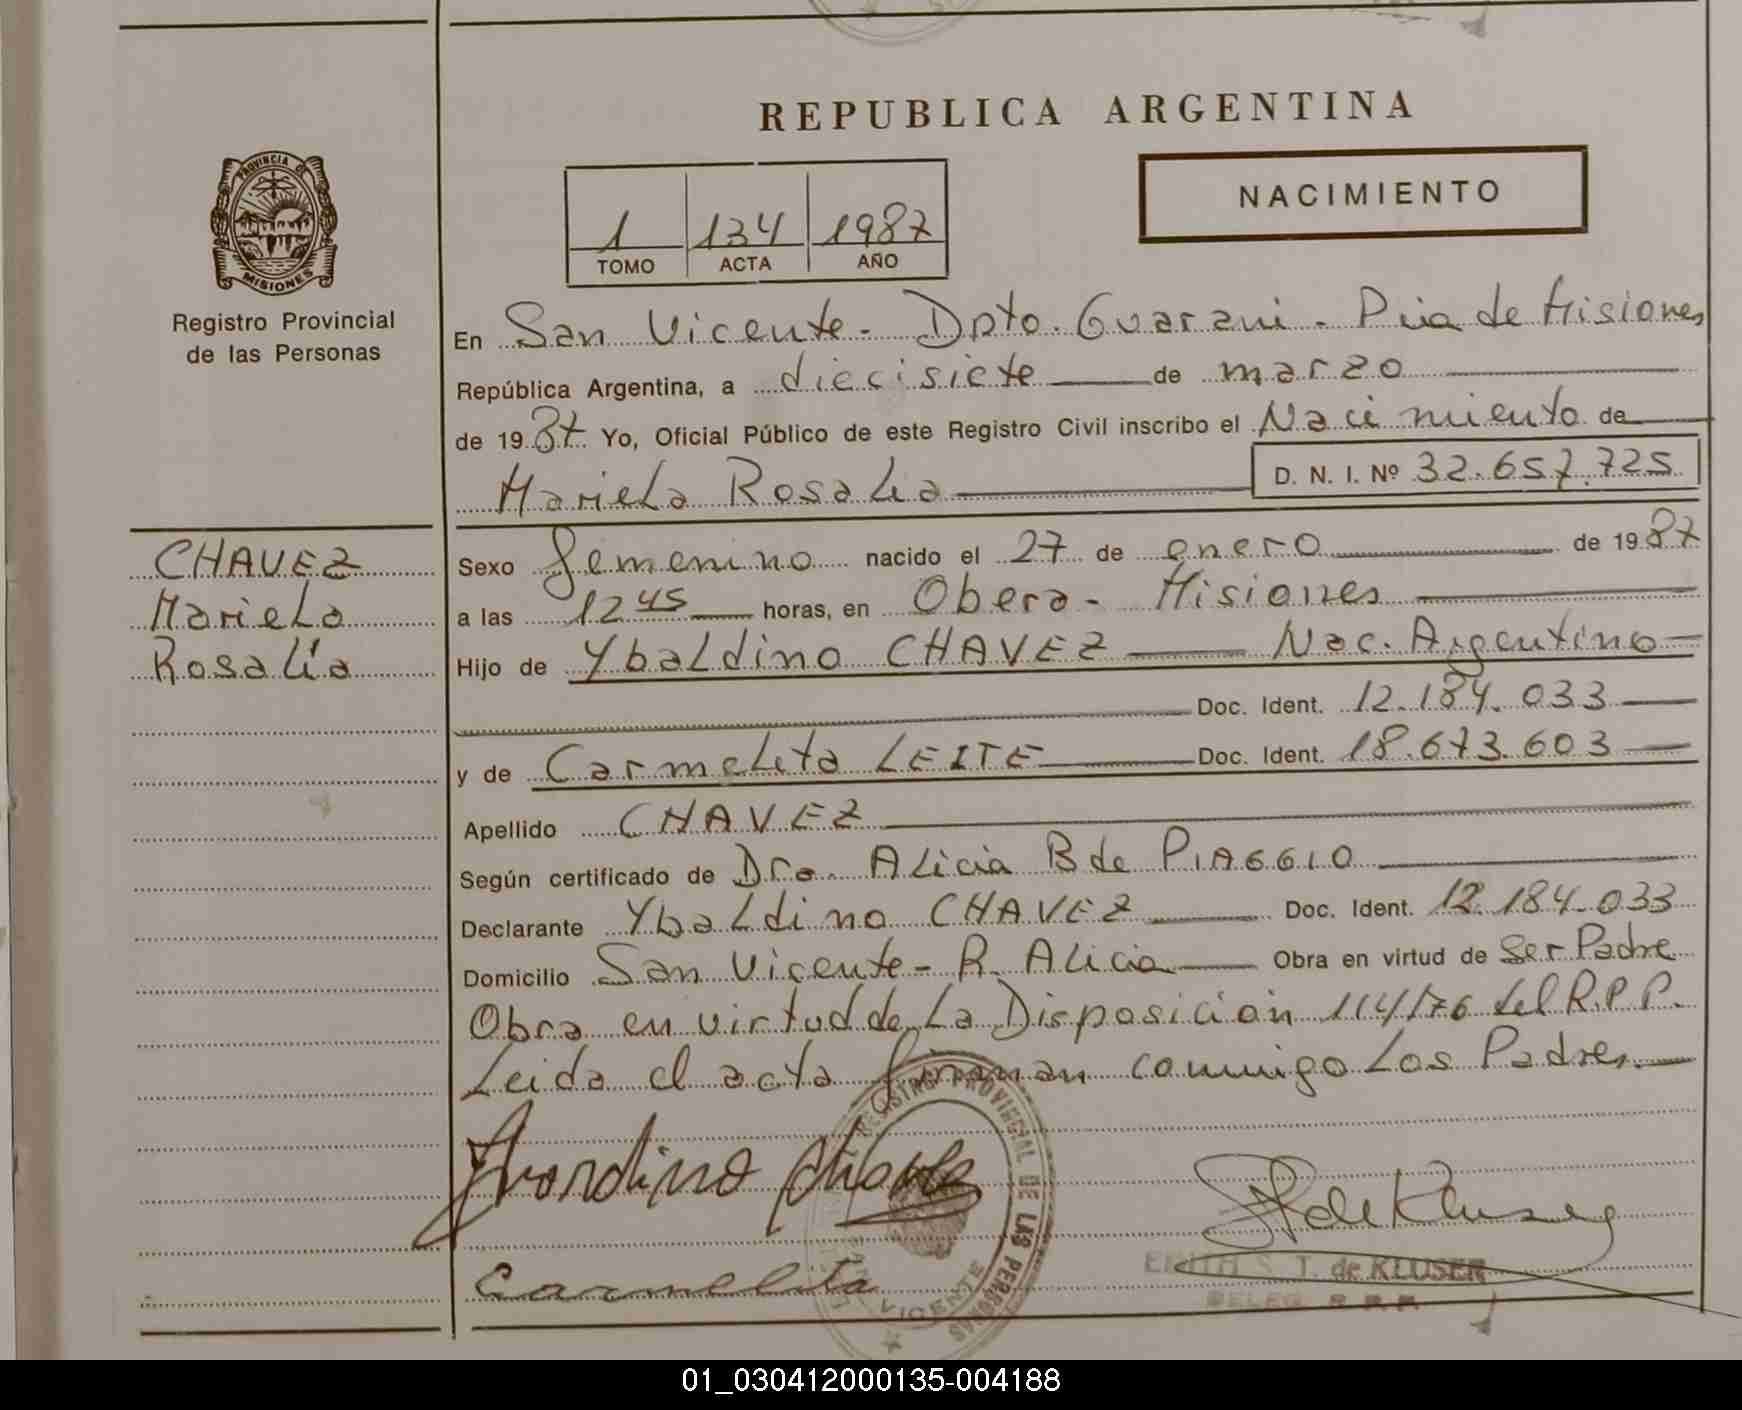 REPUBLICA ARGENTINA
PROVINCIA DE
MISIONES
Registro Provincial
de las Personas
NACIMIENTO
1 134 1987
TOMO ACTA AÑO
En San Vicente - Dpto. Guarani - Pcia de Misiones
República Argentina, a diecisiete de marzo
de 1987 Yo, Oficial Público de este Registro Civil inscribo el Nacimiento de
Mariela Rosalia D. N. I. Nº 32.657.725
CHAVEZ
Mariela
Rosalía
Sexo femenino nacido el 27 de enero de 1987
a las 12 45 horas, en Obera - Misiones
Hijo de Ybaldino CHAVEZ Nac. Argentino
Doc. Ident. 12.184.033
y de Carmelita LEITE Doc. Ident. 18.673.603
Apellido CHAVEZ
Según certificado de Dra. Alicia B de PIAGGIO
Declarante Ybaldino CHAVEZ Doc. Ident. 12.184.033
Domicilio San Vicente - R. Alicia Obra en virtud de Ser Padre
Obra en virtud de La Disposición 114/76 del R.P.P.
Leida el acta firman conmigo Los Padres
REGISTRO PROVINCIAL DE LAS PERSONAS
SAN VICENTE
Chavez
de Kluser
Carmelita
EDITH S. T. de KLUSER
DELEG. R. P. P.
01_030412000135-004188